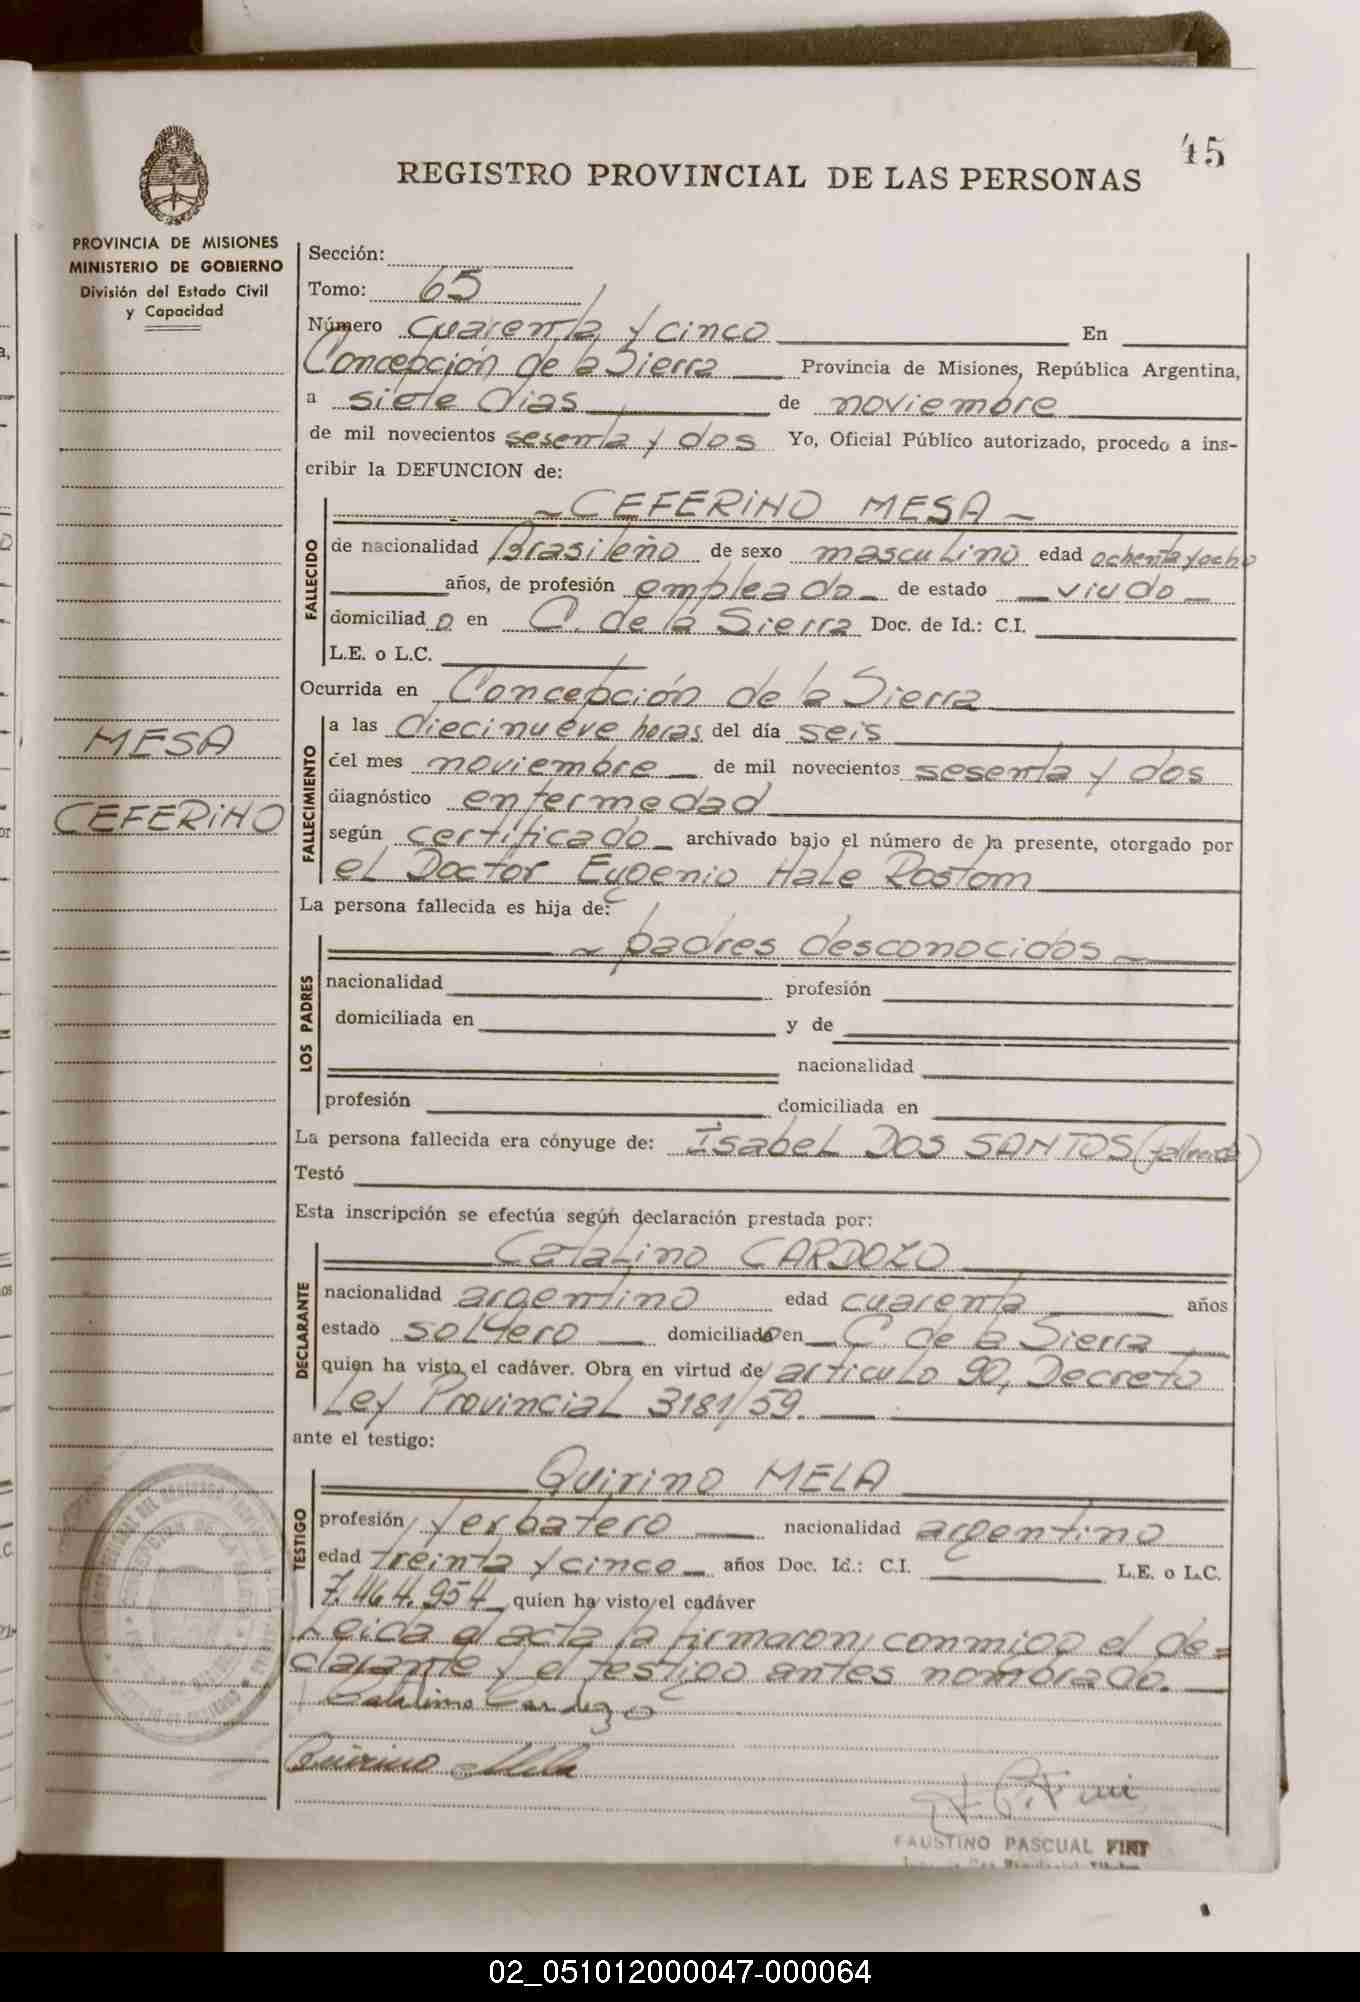 45
REGISTRO PROVINCIAL DE LAS PERSONAS
PROVINCIA DE MISIONES
MINISTERIO DE GOBIERNO
División del Estado Civil
y Capacidad
MESA
CEFERINO
Sección:
Tomo: 65
Número cuarenta y cinco En
Concepción de la Sierra Provincia de Misiones, República Argentina,
a siete dias de noviembre
de mil novecientos sesenta y dos Yo, Oficial Público autorizado, procedo a ins-
cribir la DEFUNCION de:
FALLECIDO
CEFERINO MESA
de nacionalidad Brasileño de sexo masculino edad ochenta y ocho
años, de profesión empleado de estado viudo
domiciliado en C. de la Sierra Doc. de Id.: C.I.
L.E. o L.C.
Ocurrida en Concepción de la Sierra
FALLECIMIENTO
a las diecinueve horas del día seis
del mes noviembre de mil novecientos sesenta y dos
diagnóstico enfermedad
según certificado archivado bajo el número de la presente, otorgado por
el Doctor Eugenio Hale Rostom
La persona fallecida es hija de:
LOS PADRES
padres desconocidos
nacionalidad profesión
domiciliada en y de
nacionalidad
profesión domiciliada en
La persona fallecida era cónyuge de: Isabel DOS SANTOS (fallecida)
Testó
Esta inscripción se efectúa según declaración prestada por:
DECLARANTE
Catalino CARDOZO
nacionalidad argentino edad cuarenta años
estado soltero domiciliado en C. de la Sierra
quien ha visto el cadáver. Obra en virtud de articulo 90, Decreto
Ley Provincial 3181/59.
ante el testigo:
TESTIGO
Quirino MELA
profesión yerbatero nacionalidad argentino
edad treinta y cinco años Doc. Id.: C.I. L.E. o L.C.
7.464.954 quien ha visto el cadáver
Leida el acta la firmaron conmigo el de=
clarante y el testigo antes nombrado.
Catalino Cardozo
Quirino Mela
FAUSTINO PASCUAL
02_051012000047-000064